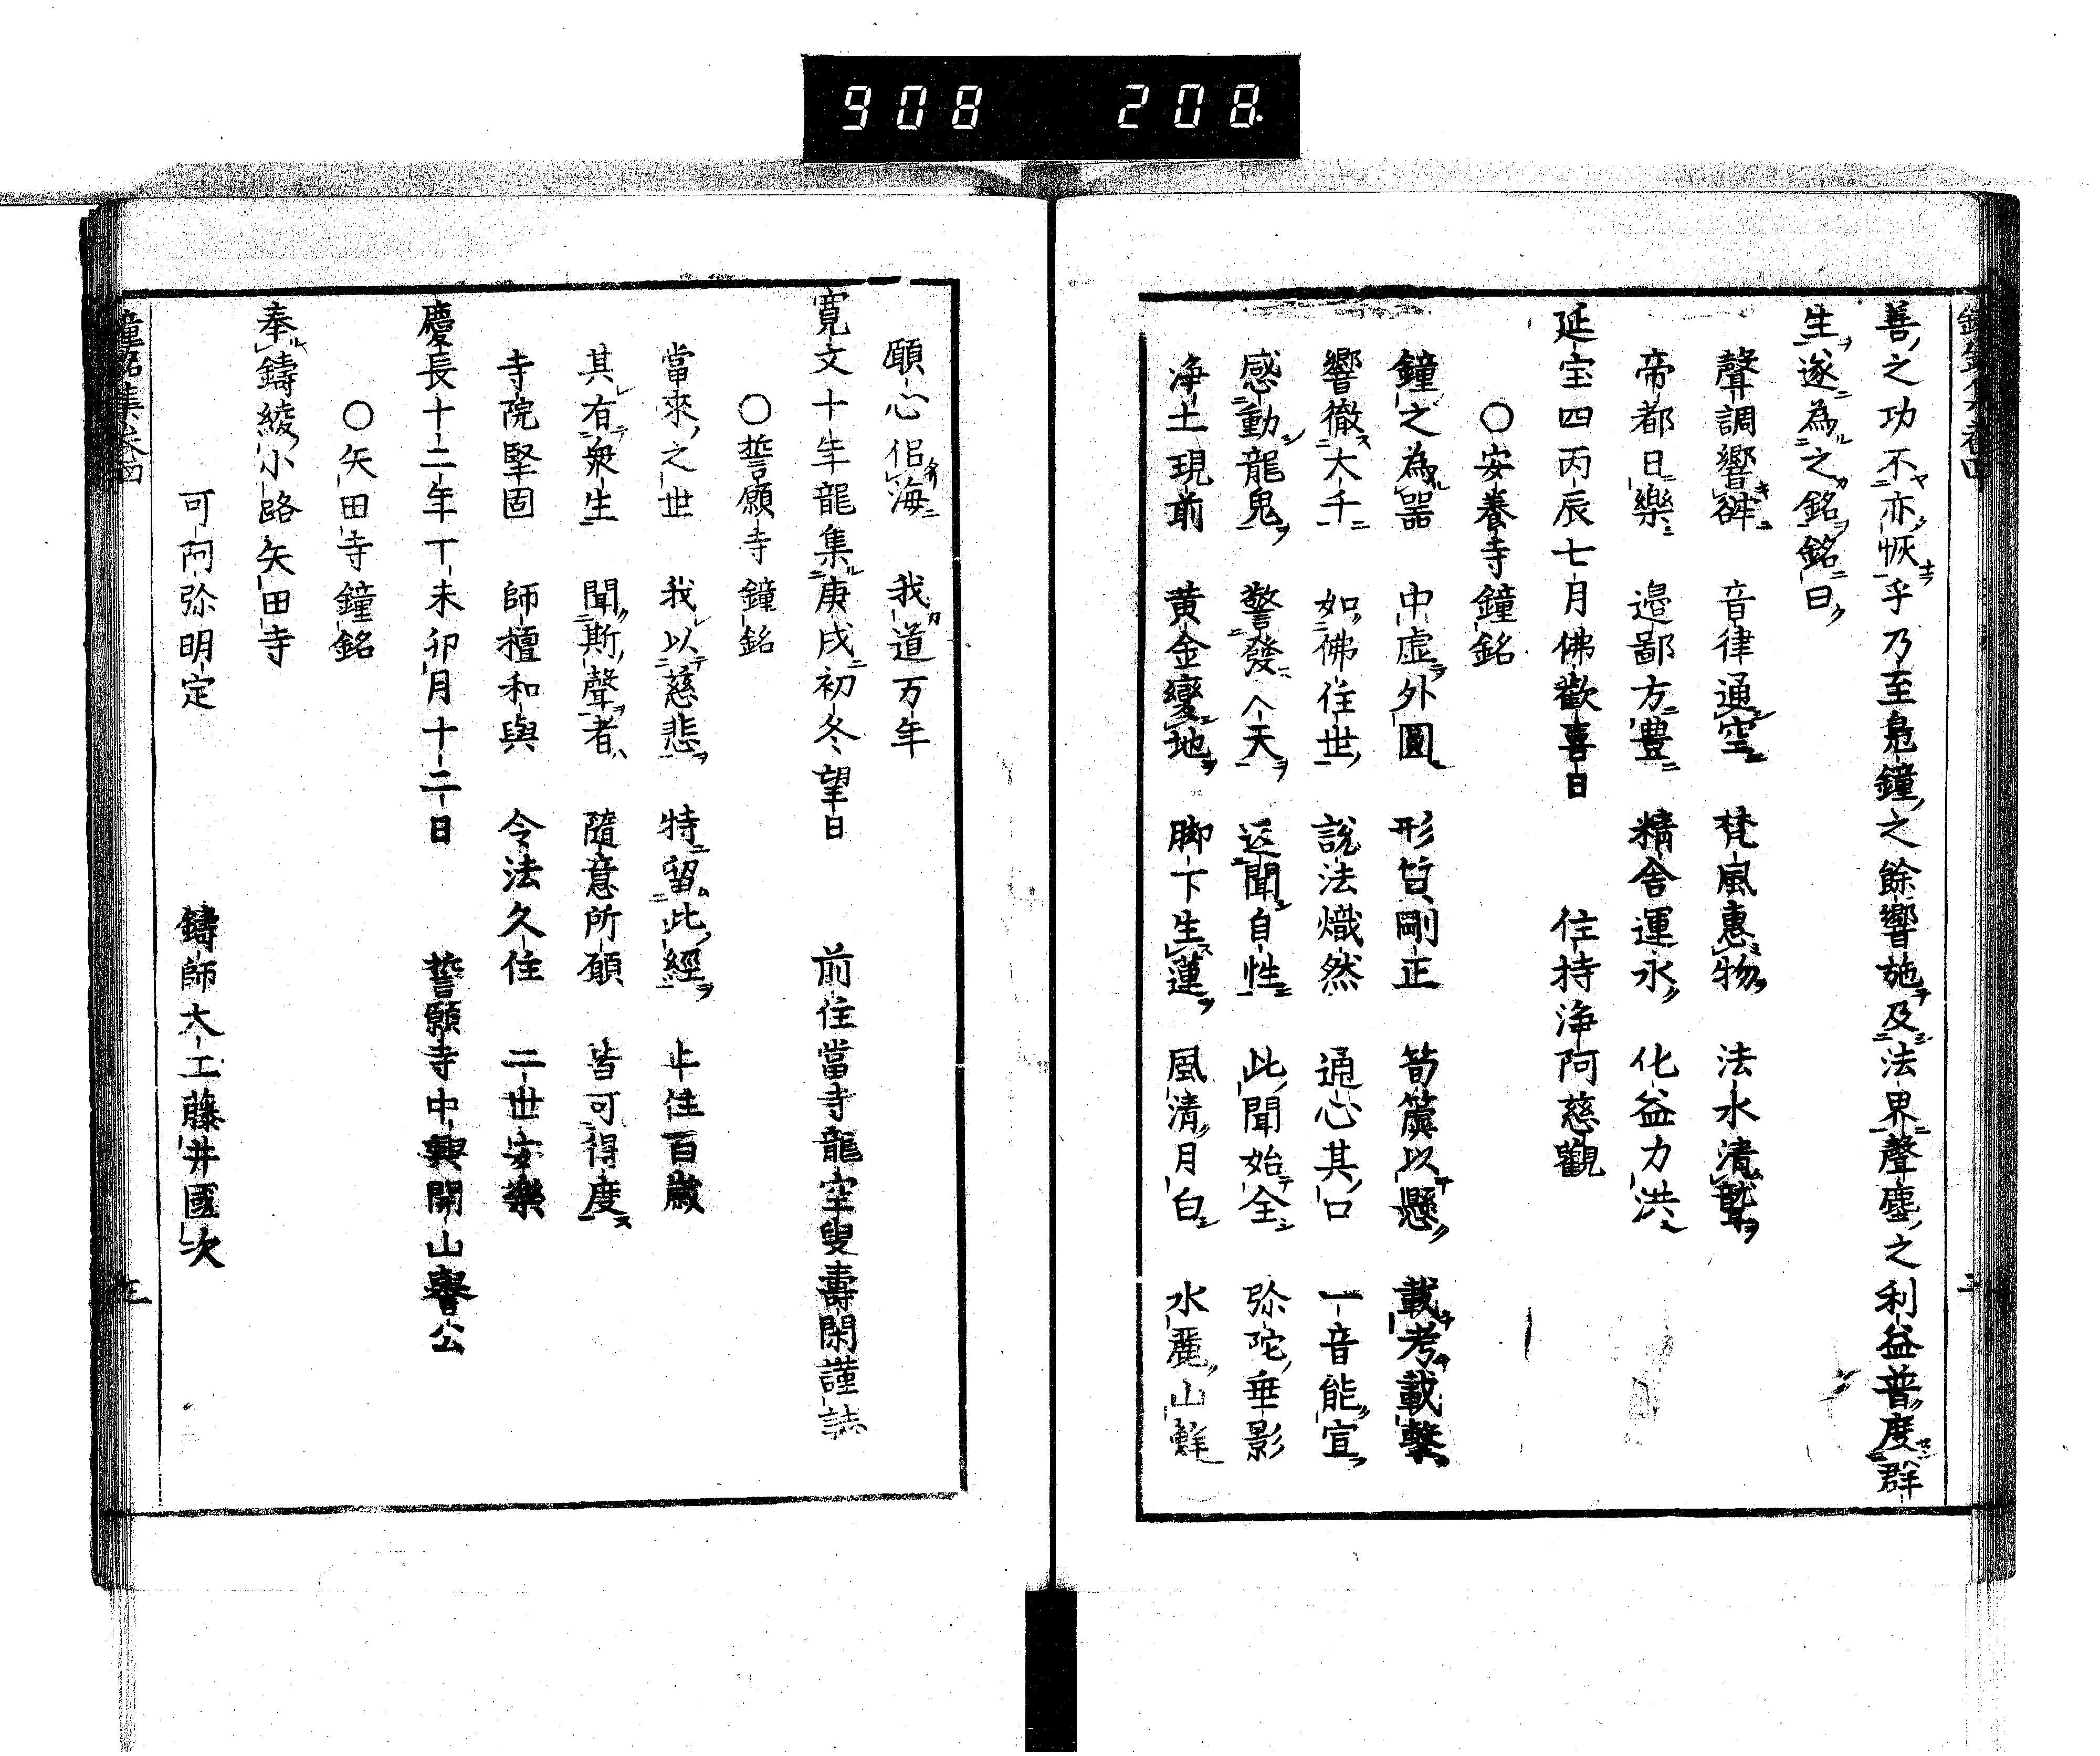 908 208
善之功不亦恢乎乃至鳬鐘之餘響施及法界聲塵之利益普度群
生遂為之銘銘曰
聲調響 音律通空 梵風惠物 法水清
帝都日樂 邉鄙方豊 精舎運水 化益力洪
延宝四丙辰七月佛歡喜日 住持浄阿慈觀
○安養寺鐘銘
鐘之為器 中虚外圓 形質剛正 筍簴以懸 載考載擊
響徹大千 如佛住世 說法熾然 通心其口 一音能宣
感動龍鬼 警發人天 返聞自性 此聞始全 弥陀垂影
浄土現前 黄金變地 脚下生蓮 風清月白 水麗山鮮
願心侶海 我道万年
寛文十年龍集庚戌初冬望日 前住當寺龍空叟壽閑謹誌
○誓願寺鐘銘
當來之世 我以慈悲 特留此經 止住百歳
其有衆生 聞斯聲者 隨意所願 皆可得度
寺院堅固 師檀和與 令法久住 二世安樂
慶長十二年丁未卯月十二日 誓願寺中興開山譽公
○矢田寺鐘銘
奉鑄綾小路矢田寺
可阿弥明定 鑄師大工藤井國次
鐘銘集卷四 三